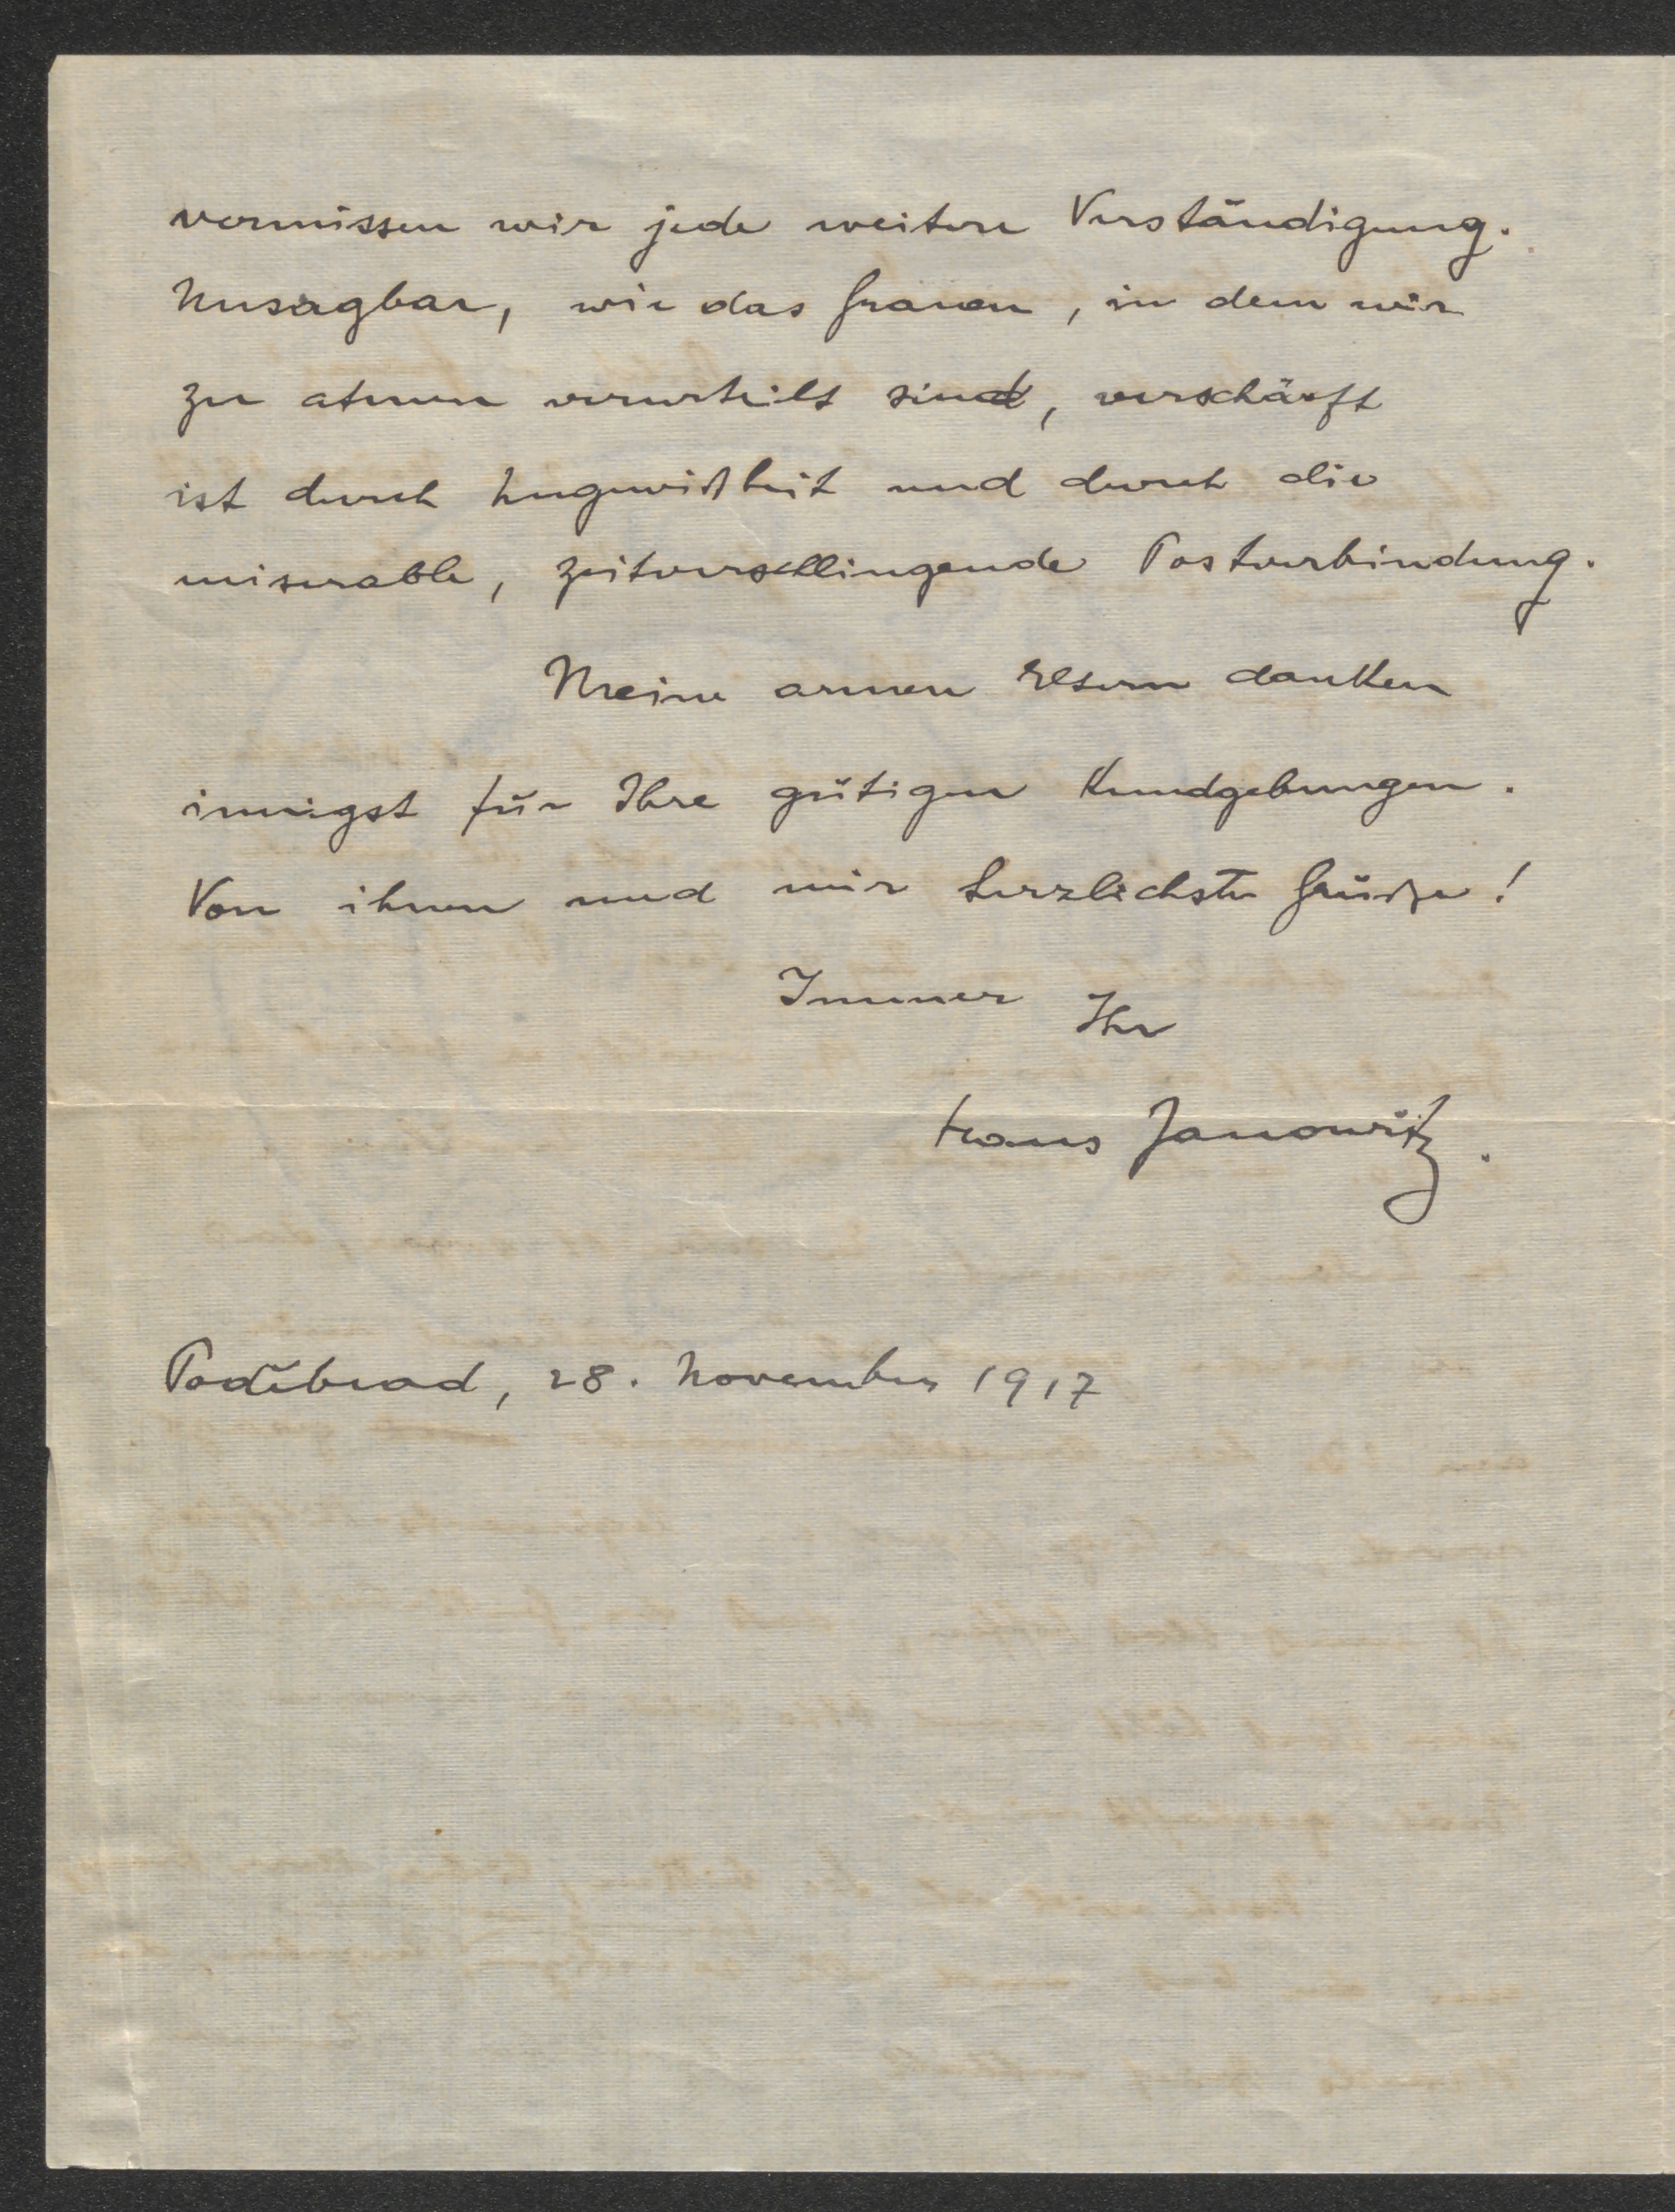 vermissen wir jede weitere Verständigung.
Unsagbar, wie das Grauen, in dem wir
zu atmen verurteilt sind, verschärft
ist durch Ungewißheit und durch die
miserable, zeitverschlingende Postverbindung.
Meine armen Eltern danken
innigst für Ihre gütigen Kundgebungen.
Von ihnen und mir herzlichste Grüße!
Immer Ihr
Hans Janowitz.
Poděbrad, 28. November 1917